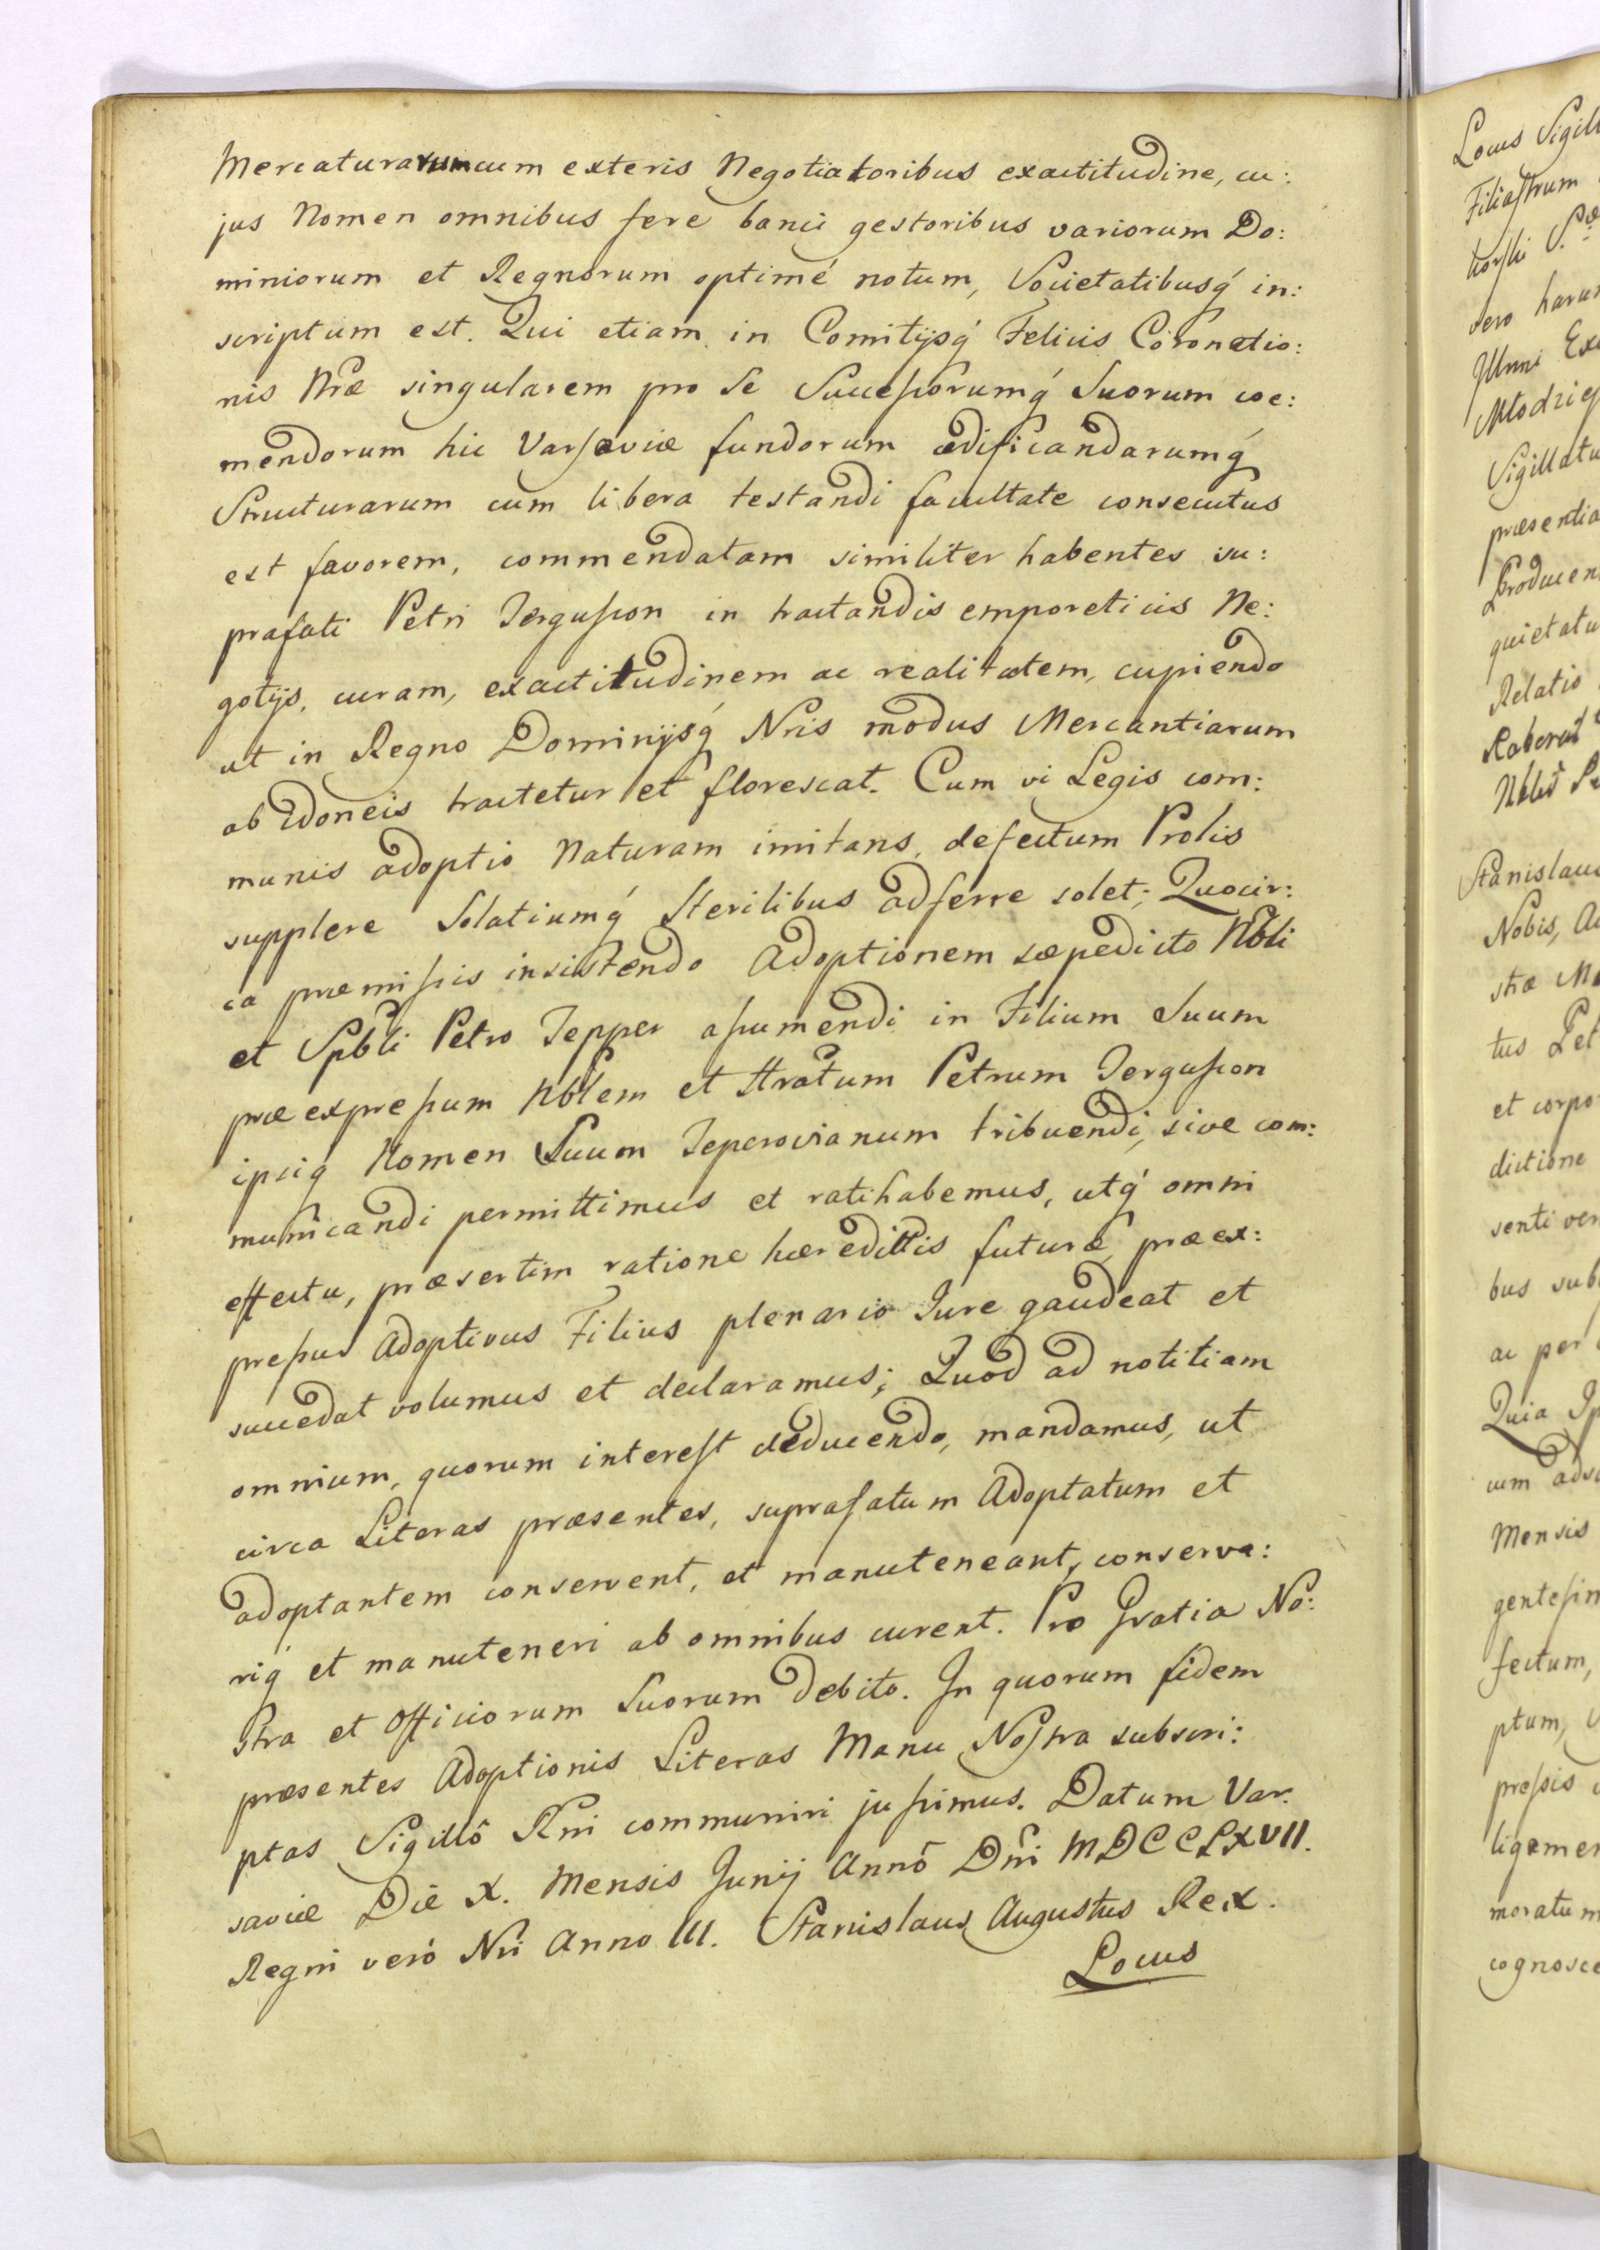 Mercaturarum cum exteris Negotiatoribus exactitudine, cu:
jus Nomen omnibus fere banci gestoribus variorum Do:
miniorum et Regnorum optimé notum, Societatibusq́ in:
scriptum est. Qui etiam in Comitijsq́ Felicis Coronatio:
nis Nræ singularem pro Se Succeſsorumq́ Suorum coe:
mendorum hic Varsaviæ fundorum ædificandarumq́
Structurarum cum libera testandi facultate consecutus
est favorem, commendatam similiter habentes su:
prafati Petri Ferguſson in tractandis emporeticis Ne:
gotijs, curam, exactitudinem ac realitatem, cupiendo
ut in Regno Dominijsq́ Nris modus Mercantiarum
ab Idoneis tractetur et florescat. Cum vi Legis com:
munis adoptio Naturam imitans, defectum Prolis
supplere Solatiumq́ Sterilibus adferre solet; Quocir:
ca præmiſsis insistendo Adoptionem sæpedicto Nbli
et Spbli Petro Tepper aſsumendi in Filium Suum
præexpreſsum Nblem et Stratum Petrum Ferguſson
ipsiq́ Nomen Suum Teperovianum tribuendi, sive com:
municandi permittimus et ratihabemus, utq́ omni
effectu, præsertim ratione hæredittis futuræ præex:
preſsus Adoptivus Filius plenario Jure gaudeat et
succedat volumus et declaramus; Quod ad notitiam
omnium, quorum intereſt deducendo, mandamus, ut
circa Literas præsentes, suprafatum Adoptatum et
adoptantem conservent, et manuteneant, conserva:
riq́ et manuteneri ab omnibus curent. Pro Gratia No:
stra et Officiorum Suorum debito. In quorum fidem
præsentes Adoptionis Literas Manu Noſtra subscri:
ptas Sigillô Rni communiri juſsimus. Datum Var:
saviæ Die X. Mensis Junij Annô Dni MDCCLXVII.
Regni verò Nri Anno III. Stanislaus Augustus Rex.
Locus
Locus Sigill
Filiaſtrum
vero harum
Illmi Exc
Młodziej
Sigillatu
præsentia
Producen
quietatu
Relatio
Roborat
Stanislau
Nobis, Au
stræ Ma
tus Pet
et corpo
dictione
senti ver
bus sub
ac per
Quia Ip
cum adsc
Mensis
genteſim
fectum,
ptum,
preſsis
ligamen
moratum
cognosce